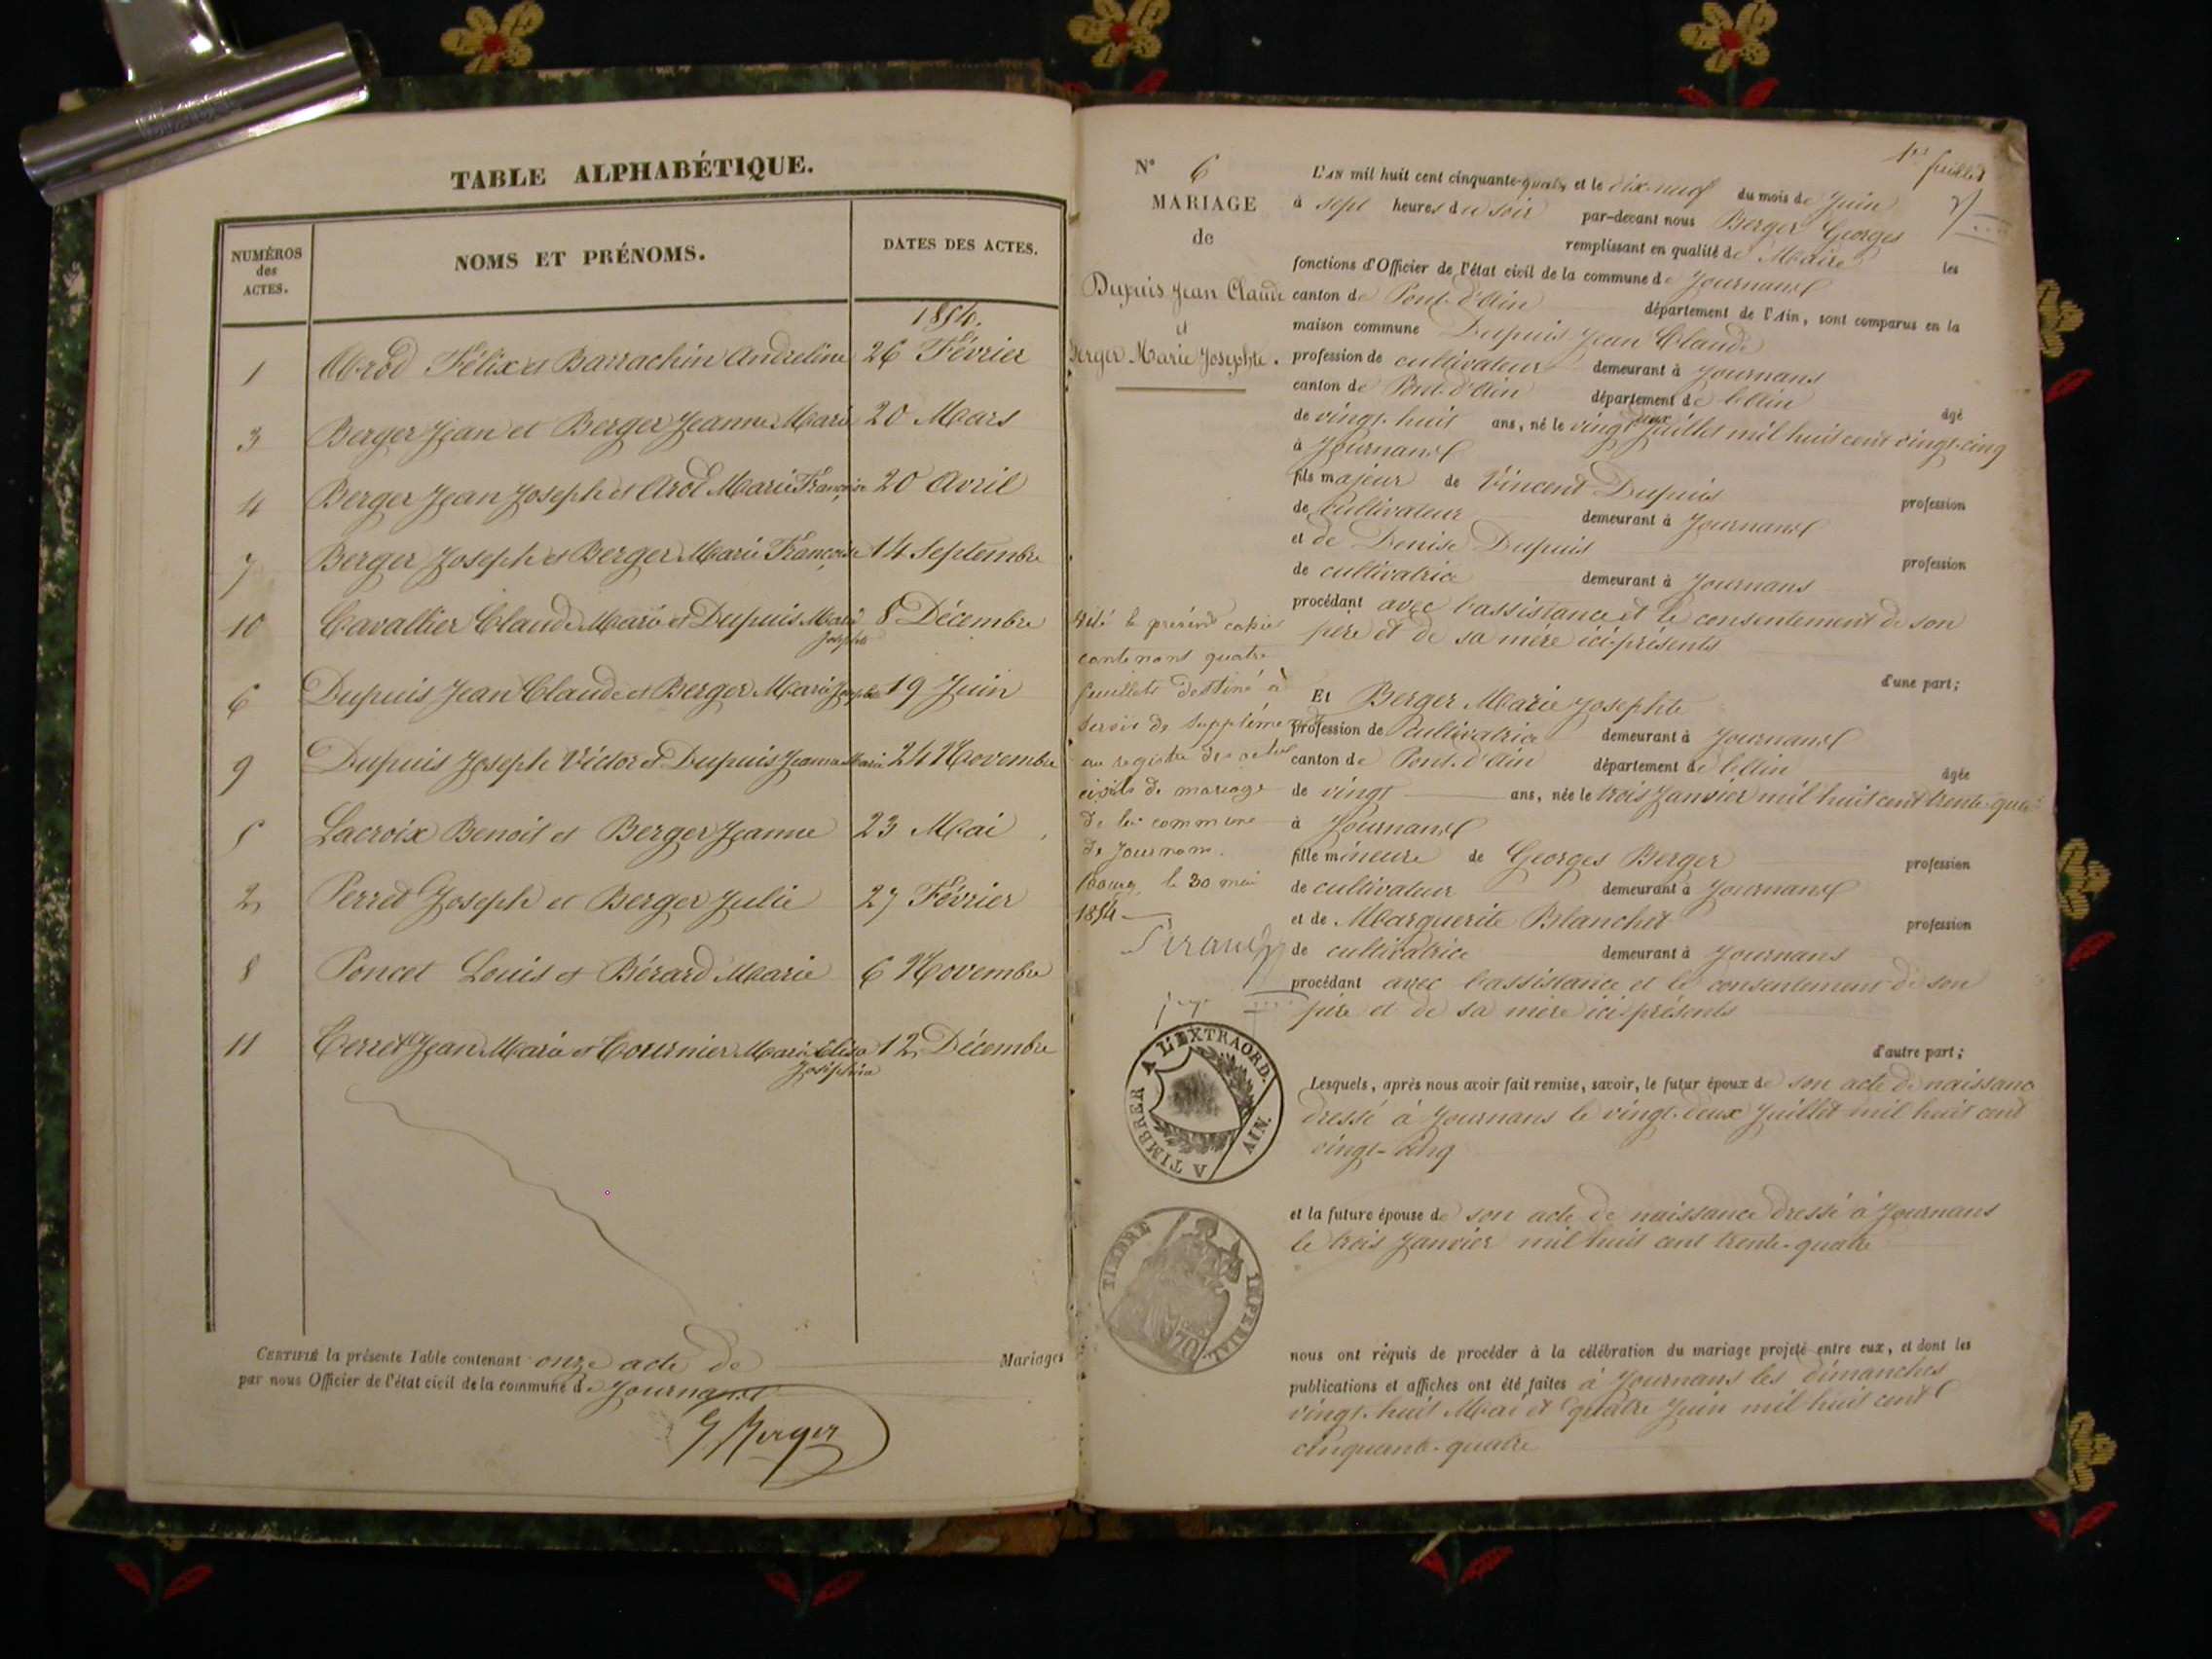 TABLE ALPHABÉTIQUE.
NUMÉROS des ACTES.
NOMS ET PRÉNOMS.
DATES DES ACTES.
1854.
1 Arod Félix et Barrachin Andreline 26 Février
3 Berger Jean et Berger Jeanne Marie 20 Mars
4 Berger Jean Joseph et Arod Marie Françoise 20 Avril
7 Berger Joseph et Berger Marie Françoise 14 Septembre
10 Cavallier Claude Marie et Dupuis Marie Josephte 8 Décembre
6 Dupuis Jean Claude et Berger Marie Josephte 19 Juin
9 Dupuis Joseph Victor et Dupuis Jeanne Marie 24 Novembre
5 Lacroix Benoit et Berger Jeanne 23 Mai
2 Perret Joseph et Berger Julie 27 Février
8 Poncet Louis et Bérard Marie 6 Novembre
11 Terret Jean Marie et Tournier Marie Elisa Joséphine 12 Décembre
CERTIFIÉ la présente Table contenant onze acte de Mariages
par nous Officier de l'état civil de la commune de Journans
G Berger
1er feuillet
N° 6
MARIAGE
de
Dupuis Jean Claude
et
Berger Marie Josephte.
L'AN mil huit cent cinquante-quatre et le dix-neuf du mois de Juin
à sept heures du soir par-devant nous Berger Georges
remplissant en qualité de Maire les
fonctions d'Officier de l'état civil de la commune de Journans
canton de Pont-d'Ain département de l'Ain, sont comparus en la
maison commune Dupuis Jean Claude
profession de cultivateur demeurant à Journans
canton de Pont-d'Ain département de l'Ain âgé
de vingt-huit ans, né le vingt deux Juillet mil huit cent vingt-cinq
à Journans
fils majeur de Vincent Dupuis profession
de Cultivateur demeurant à Journans
et de Denise Dupuis profession
de cultivatrice demeurant à Journans
procédant avec l'assistance et le consentement de son
père et de sa mère ici-présents
d'une part;
Et Berger Marie Josephte
profession de Cultivatrice demeurant à Journans
canton de Pont-d'Ain département de l'Ain âgée
de vingt ans, née le trois Janvier mil huit cent trente-quatre
à Journans
fille mineure de Georges Berger profession
de cultivateur demeurant à Journans
et de Marguerite Blanchet profession
de cultivatrice demeurant à Journans
procédant avec l'assistance et le consentement de son
père et de sa mère ici-présents
d'autre part;
Lesquels, après nous avoir fait remise, savoir, le futur époux de son acte de naissance
dressé à Journans le vingt-deux Juillet mil huit cent
vingt-cinq
et la future épouse de son acte de naissance dressé à Journans
le trois Janvier mil huit cent trente-quatre
nous ont requis de procéder à la célébration du mariage projeté entre eux, et dont les
publications et affiches ont été faites à Journans les dimanches
vingt-huit Mai et quatre Juin mil huit cent
cinquante-quatre
le présent cahier
contenant quatre
feuillets destiné à
servir de supplément
au registre des actes
civils de mariage
de la commune
de Journans.
Bourg, le 30 mai
1854
A L'EXTRAORD.
AIN.
A TIMBRER
TIMBRE IMPERIAL